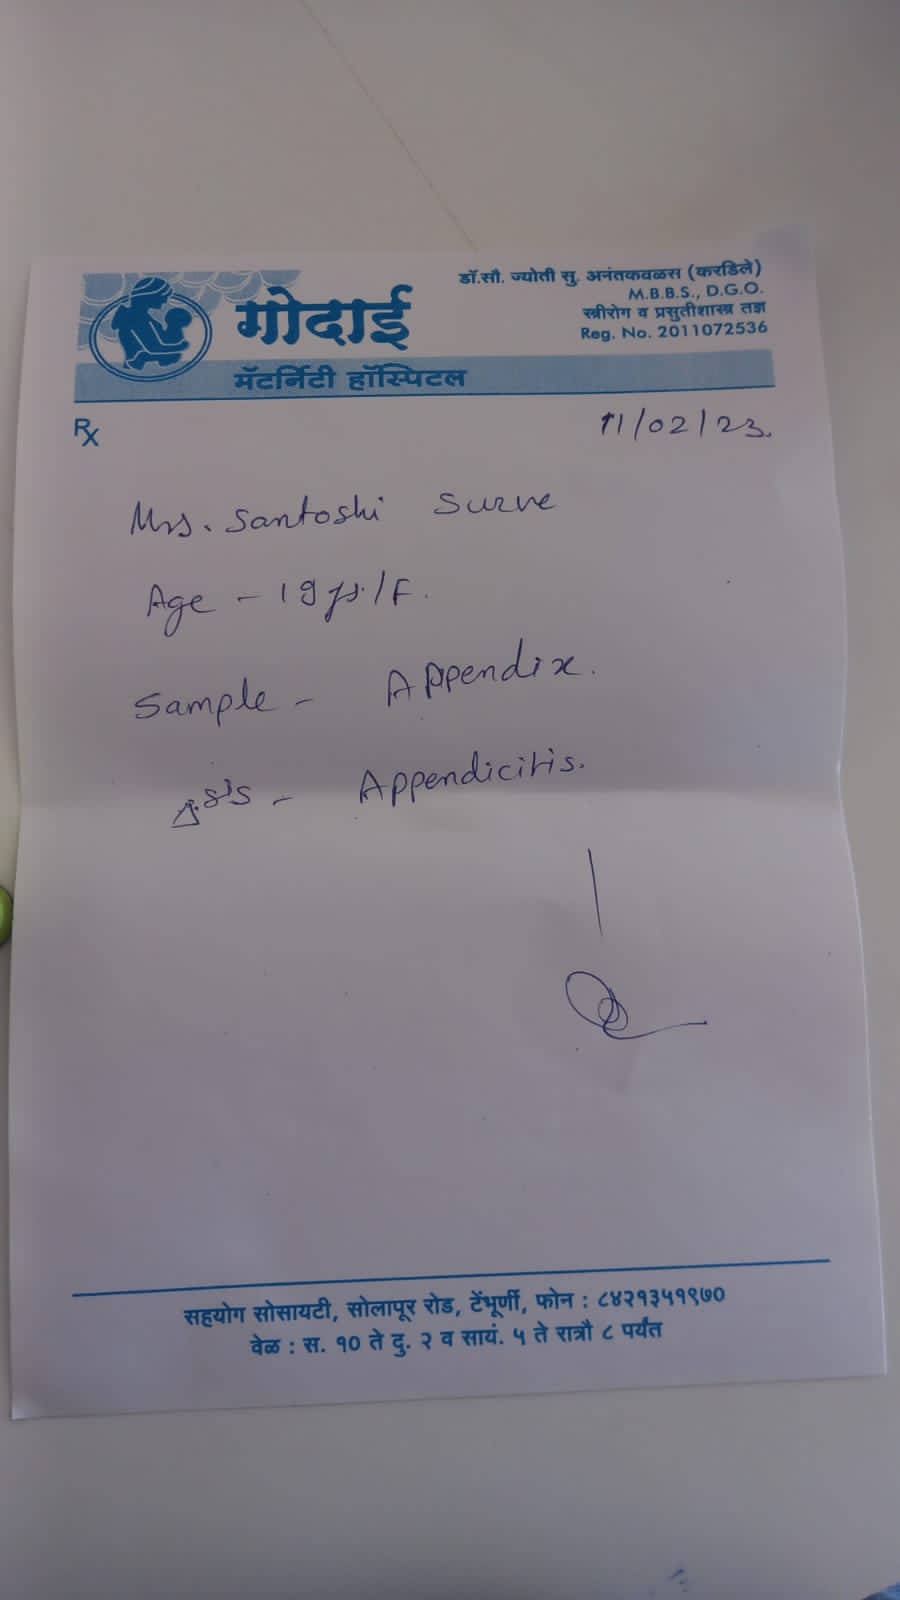 गोदाई
मॅटर्निटी हॉस्पिटल
डॉ.सौ. ज्योती सु. अनंतकवळस (करडिले)
M.B.B.S., D.G.O.
स्त्रीरोग व प्रसुतीशास्त्र तज्ञ
Reg. No. 2011072536
Rx
11/02/23.
Mrs. Santoshi Surve
Age - 19 ys./F.
Sample - Appendix.
- Appendicitis.
सहयोग सोसायटी, सोलापूर रोड, टेंभूर्णी, फोन : ८४२१३५१९७०
वेळ : स. १० ते दु. २ व सायं. ५ ते रात्रौ ८ पर्यंत